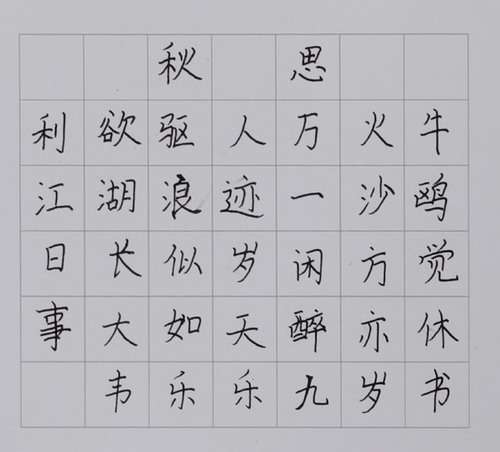 秋思
利欲驱人万火牛
江湖浪迹一沙鸥
日长似岁闲方觉
事大如天醉亦休
韦乐乐九岁书